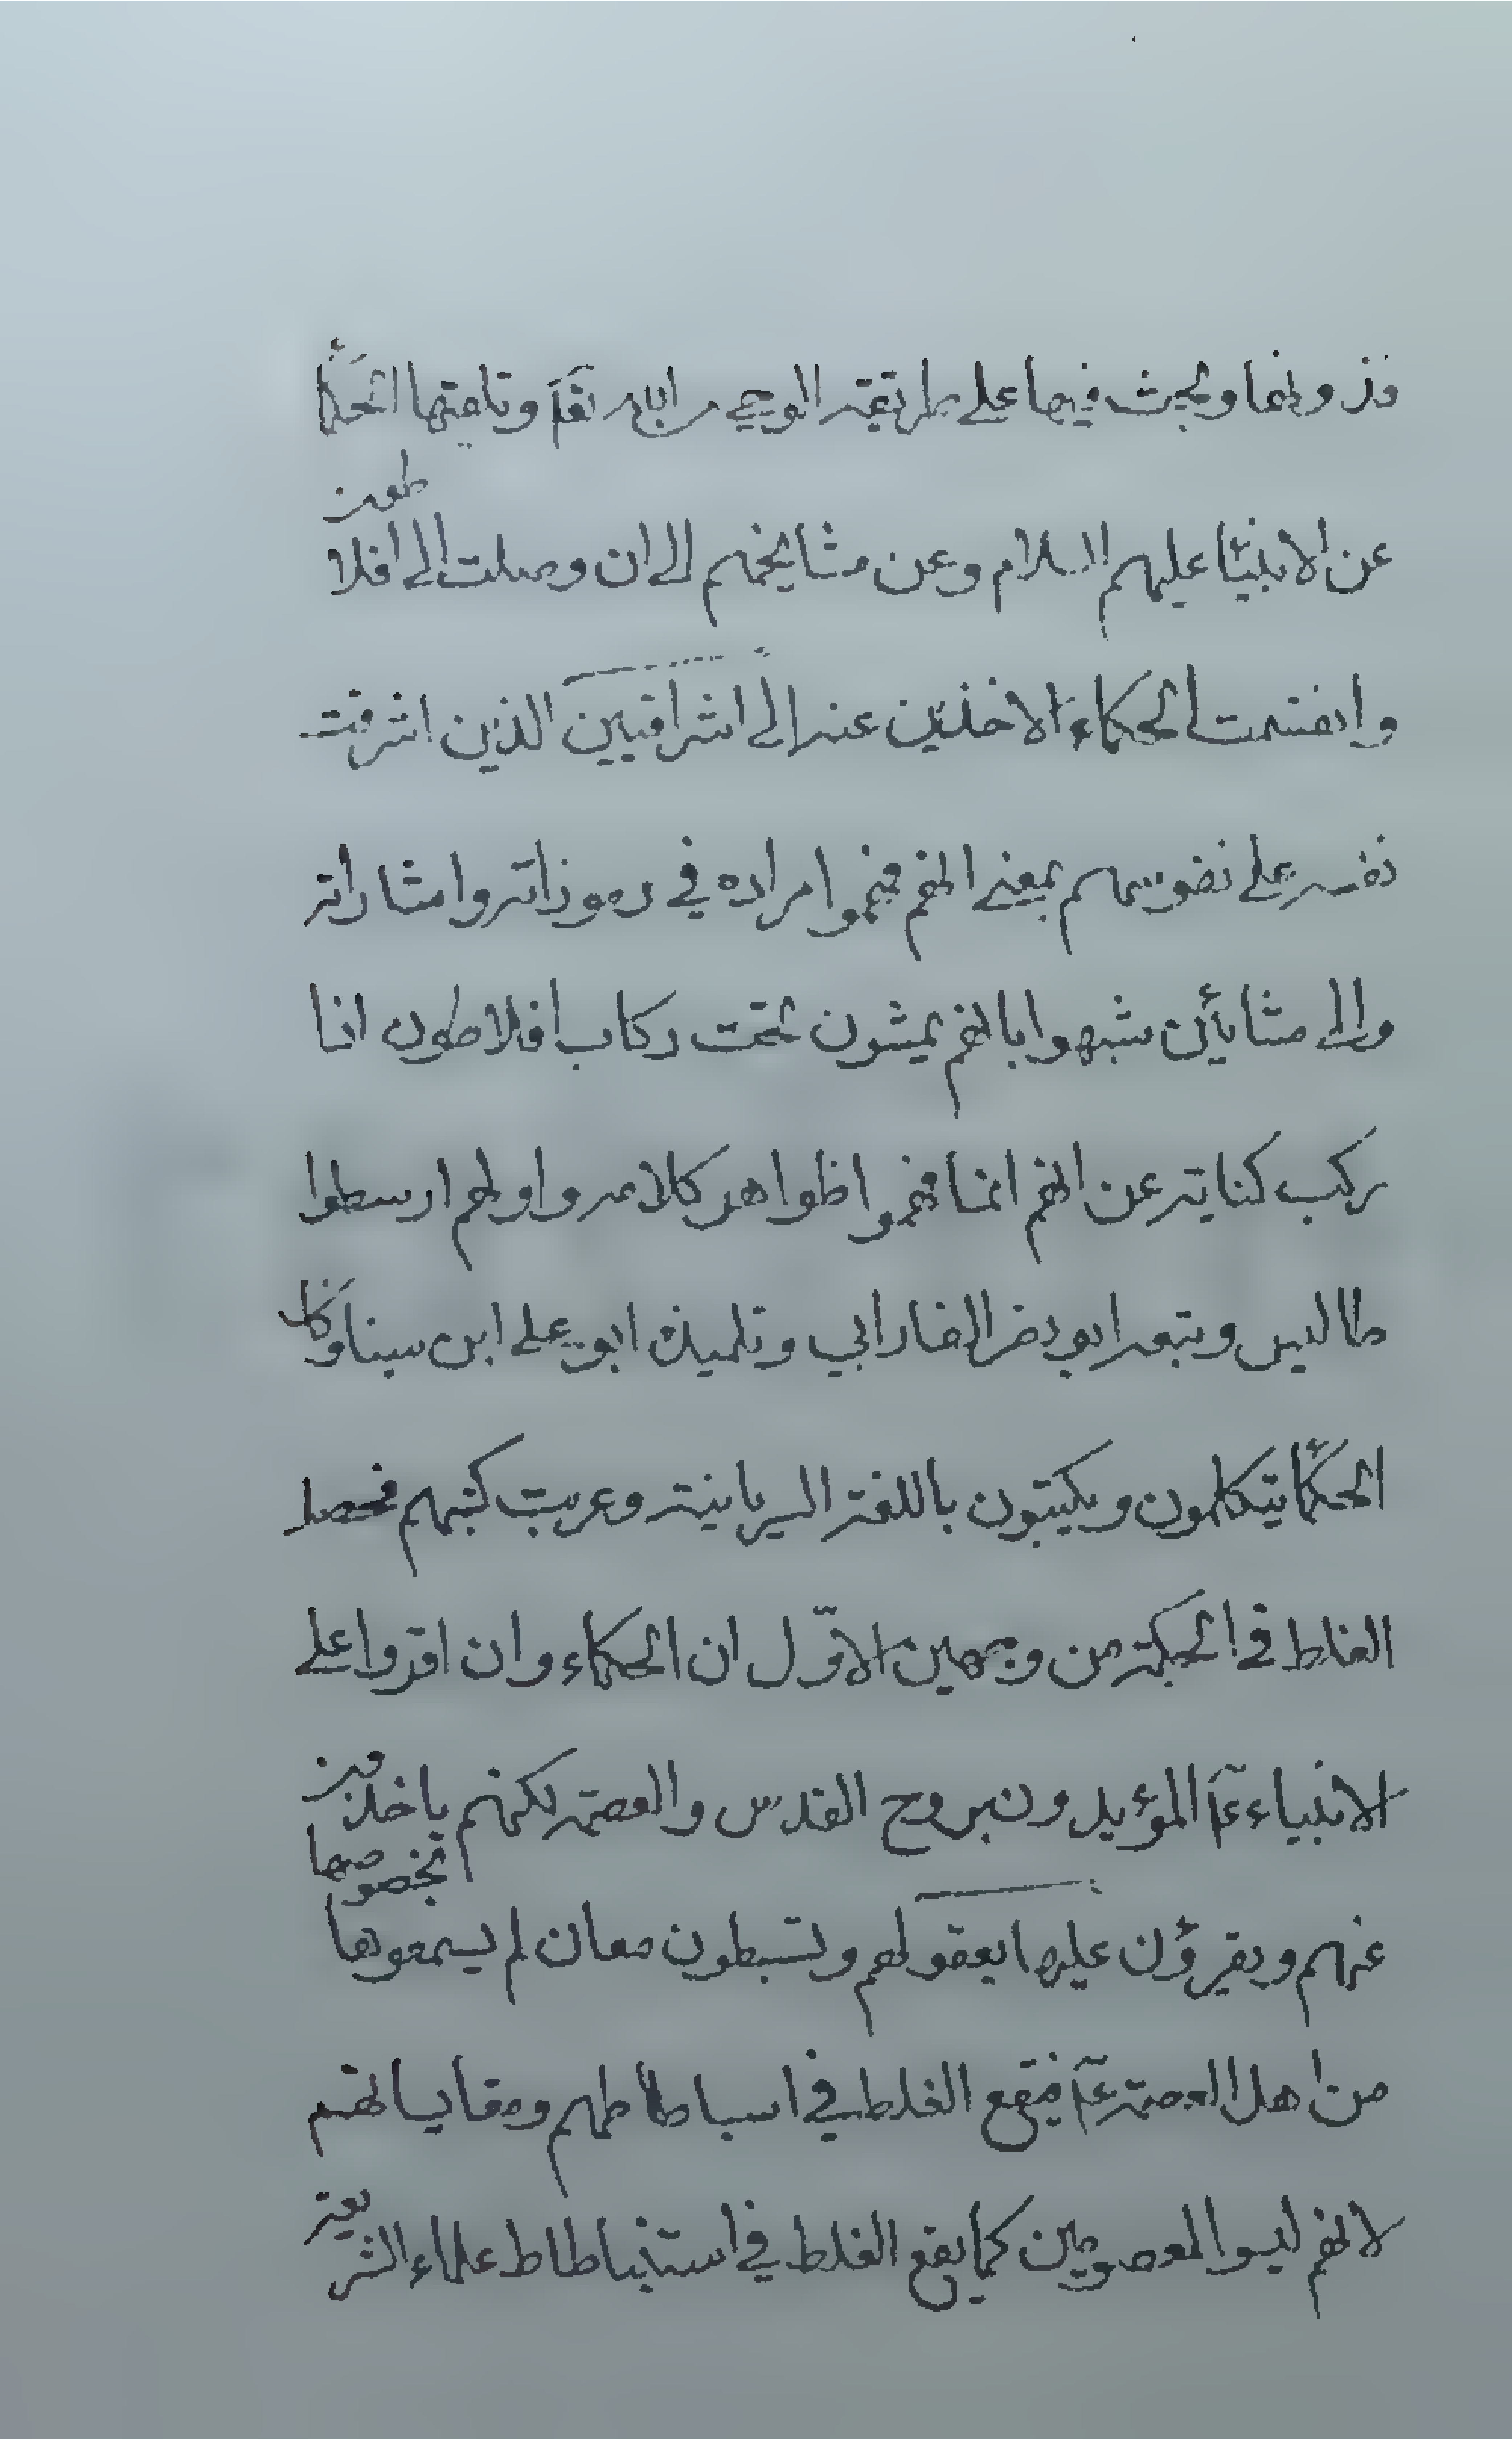 فذونها وبحث فيها على طريقة الوحي من الله تعالى وتلقتها الحكماء
عن الانبياء عليهم السلام وعن مشايخهم الى ان وصلت الى افلاطون
وانقسمت الحكماء الاخذين عنه الى اشراقيين الذين اشرقت
نفسه على نفوسهم بمعنى انهم فهموا مراده في رموزاته واشاراته
والى مشائين شبهوا بانهم يمشون تحت ركاب افلاطون اذا
ركب كناية عن انهم انما فهموا ظواهر كلامه واولهم ارسطوا
طاليس وتبعه ابو نصر الفارابي وتلميذه ابو علي ابن سينا وكان
الحكماء يتكلمون ويكتبون باللغة السريانية وعربت كتبهم فحصل
الغلط في الحكمة من وجهين الاوّل ان الحكماء وان اقروا على
الانبياء ع‍م المؤيدون بروح القدس والعصمة لكنهم ياخذون
عنهم ويقرؤن عليها بعقولهم وتسبطون معان لم يسمعوها بخصوصها
من اهل العصمة ع‍م فيقع الغلط في اسباطاطهم ومقايساتهم
لانهم ليسوا لمعصومين كما يقع الغلط في استنباطاط علماء الشريعة